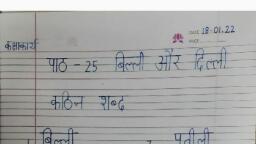 DATE 18.01.22
कक्षाकार्य
पाठ - 25 बिल्ली और दिल्ली
कठिन शब्द
बिल्ली पतीली